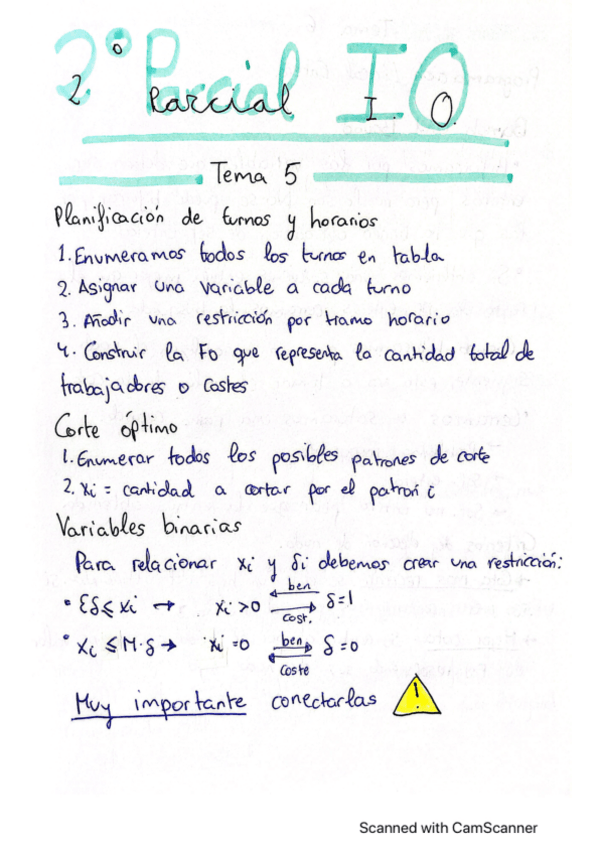 2º Parcial IO
2 Parcial I.O.
Tema 5
Planificación de turnos y horarios
1. Enumeramos todos los turnos en tabla
2. Asignar una variable a cada turno
3. Añadir una restricción por tramo horario
4. Construir la Fo que representa la cantidad total de
trabajadores o Costes
Corte óptimo
1. Enumerar todos los posibles patrones de corte
2. xi = cantidad a cortar por el patrón i
Variables binarias
Para relacionar xi y δi debemos crear una restricción:
ben
• Eδ ≤ xi → xi > 0 ⇄ δ=1
cost.
ben
• xi ≤ M·δ → xi = 0 ⇄ δ=0
coste
Muy importante conectarlas !
Scanned with CamScanner